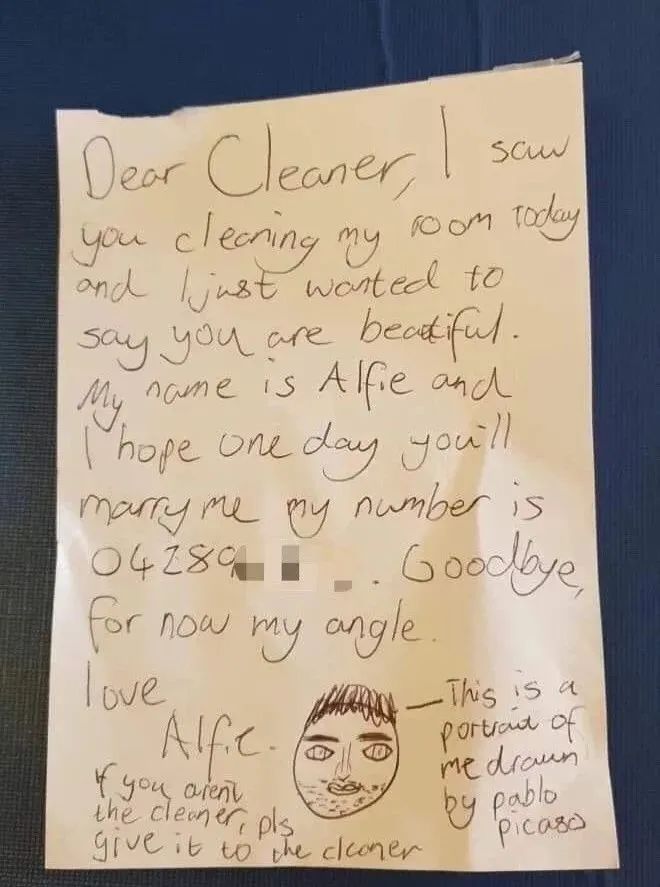 Dear Cleaner, I saw
you cleaning my room Today
and I just wanted to
say you are beautiful.
My name is Alfie and
I hope one day you'll
marry me my number is
04289 . Goodbye,
for now my angle.
love
Alfie.
This is a
portrait of
me drawn
by pablo
picaso
if you arent
the cleaner, pls
give it to the cleaner